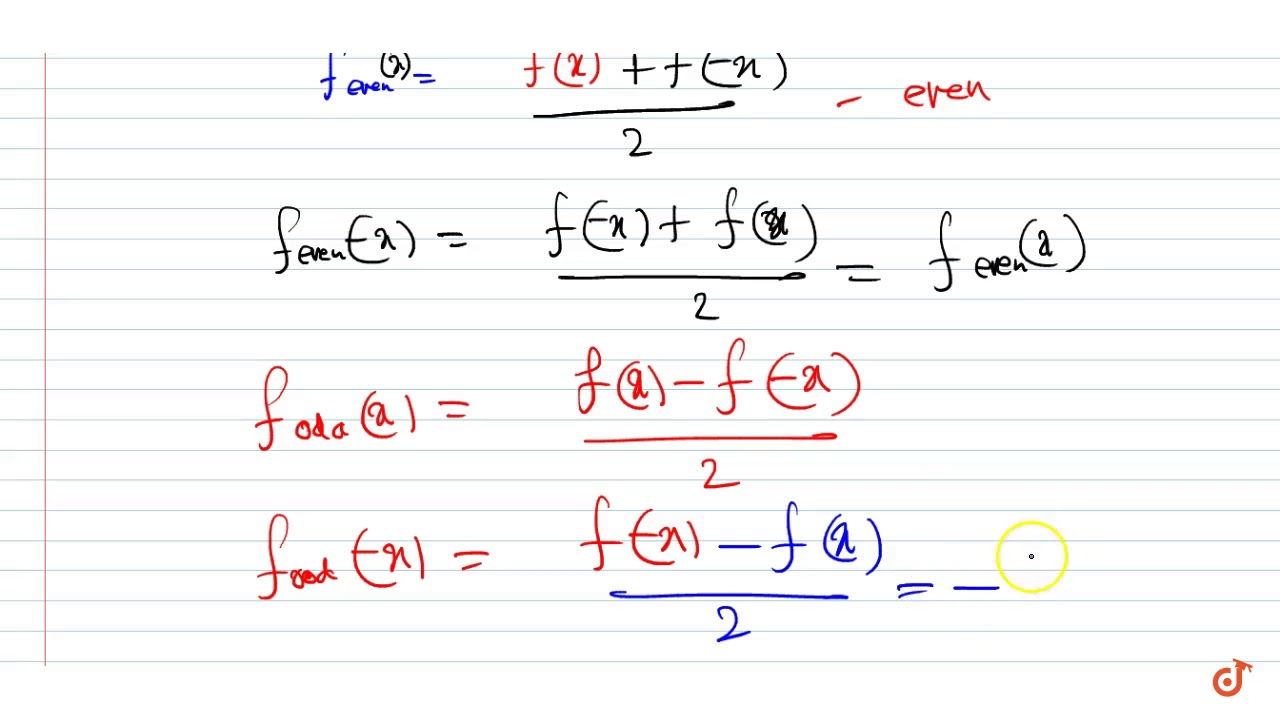 f even (x) = f(x) + f(-x) / 2 - even
f even (-x) = f(-x) + f(x) / 2 = f even (x)
f odd (x) = f(x) - f(-x) / 2
f (-x) = f(-x) - f(x) / 2 = -